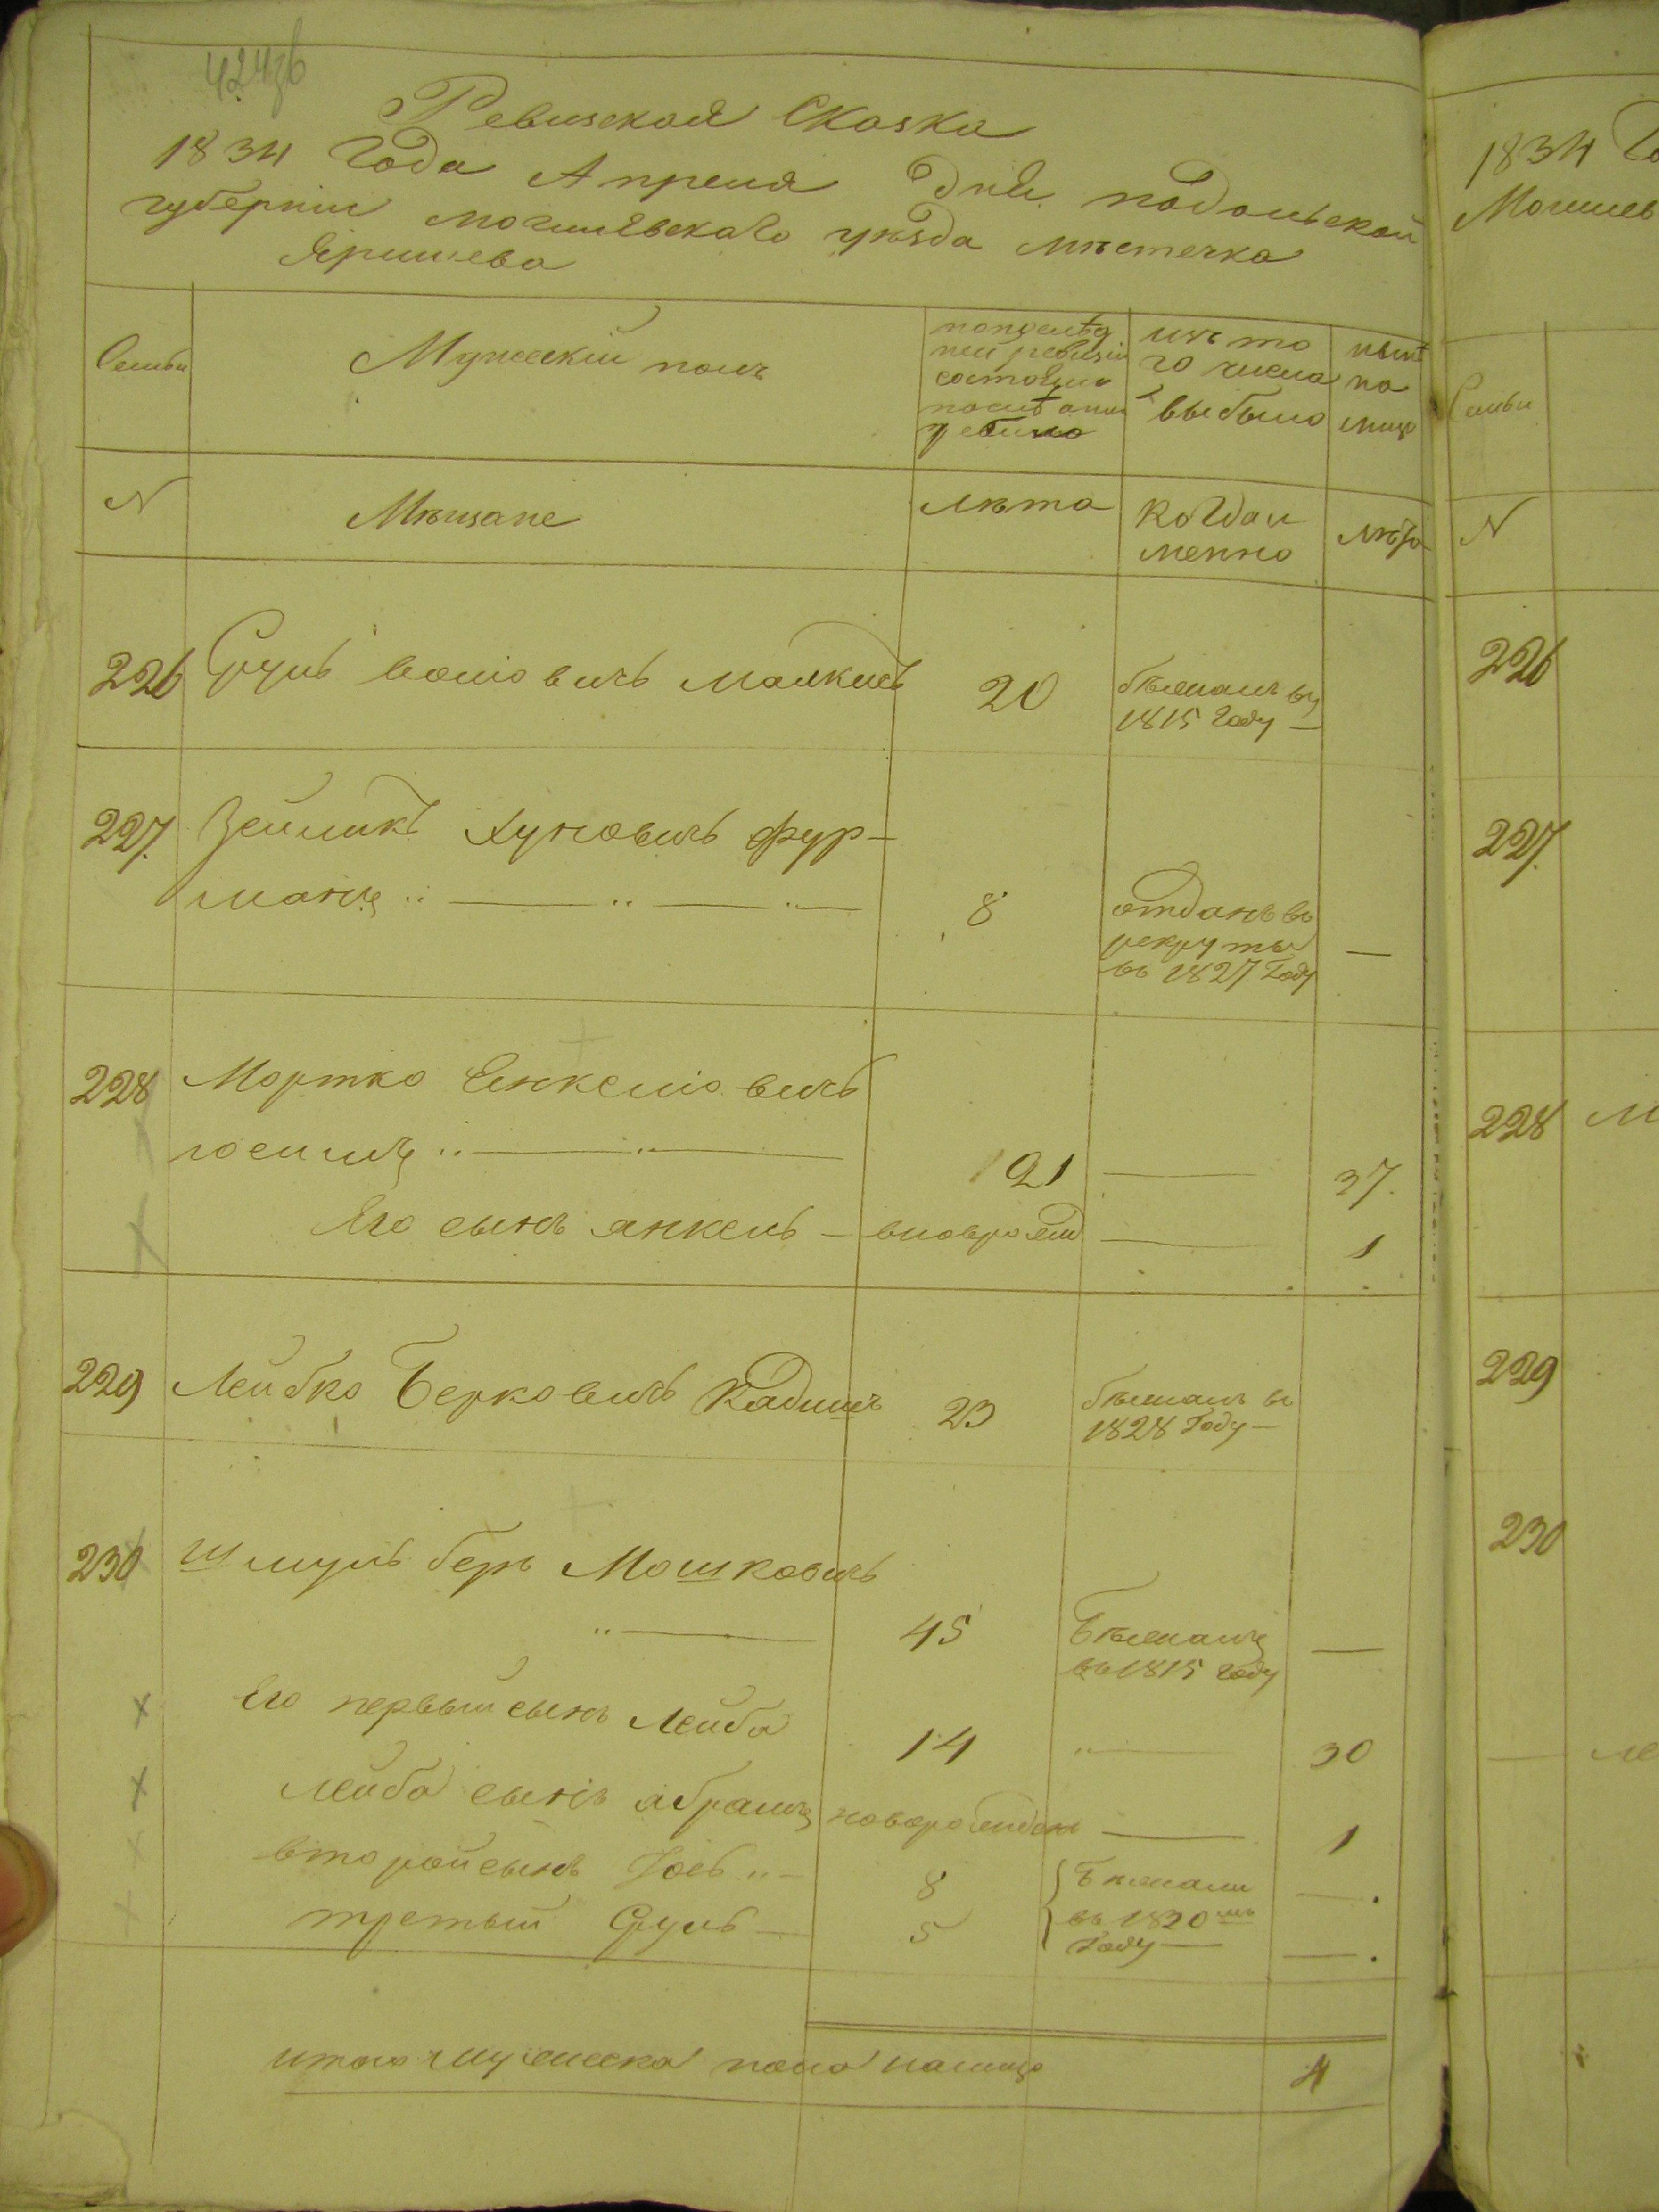 Ревизская Сказка
1834 Года Апреля дня подольской
губернии могилевскаго уѣзда мѣстечка
Яришева
Семьи
Мужескій полъ
по послѣд
ней ревизіи
состояло
и послѣ оной
изъ то
го числа
выбыло
нынѣ
на
лицо
N
Мѣщане
лѣта
Когда и
менно
лѣта
226 Сруль Малкись 20 бѣжалъ въ
1815 Году —
227. Зейликъ Хуновичъ фур-
манъ 8 отданъ въ
рекруты
въ 1827 Году —
228 Мортко Енкеліовичъ
21 — 37.
Его сынъ янкель — вновро жд — 1
229 Лейбко Берковичъ Кадишъ 23 бѣжалъ въ
1828 Году —
230 Шмуль беръ Мошковичъ
45 Бѣжалъ
въ 1815 Году —
Его первый сынъ Лейба 14 30
Лейба сынъ абрамъ новорожденъ — 1
второй сынъ 8 Бѣжали — .
третьий Сруль — 5 въ 1830мъ
Году — — .
итого мужеска пола налицо 4
1834
Могилев
Семьи
N
226
227.
228 М
229
230
— ле